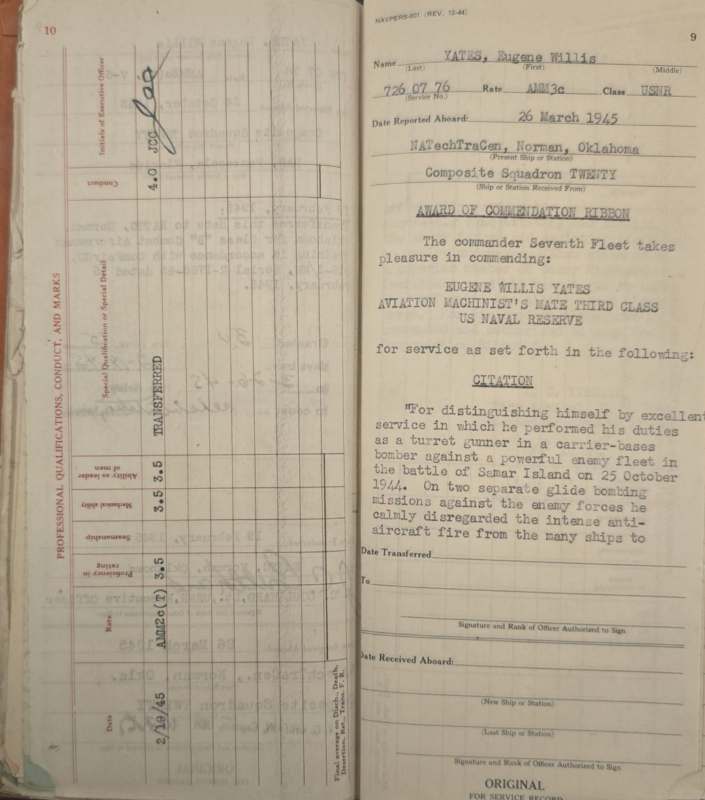 10
PROFESSIONAL QUALIFICATIONS, CONDUCT, AND MARKS
Date
Rate
Proficiency in rating
Seamanship
Mechanical ability
Ability as leader of men
Special Qualification or Special Detail
Conduct
Initials of Executive Officer
2/19/45 AMM2c(T) 3.5 3.5 3.5 TRANSFERRED 4.0 JCC
Final average on Disch., Death,
Desertion, Ret., Trans. F. R.
NAVPERS-601 (REV. 12-44)
9
Name YATES, Eugene Willis
(Last) (First) (Middle)
726 07 76 Rate AMM3c Class USNR
(Service No.)
Date Reported Aboard: 26 March 1945
NATechTraCen, Norman, Oklahoma
(Present Ship or Station)
Composite Squadron TWENTY
(Ship or Station Received From)
AWARD OF COMMENDATION RIBBON
The commander Seventh Fleet takes
pleasure in commending:
EUGENE WILLIS YATES
AVIATION MACHINIST'S MATE THIRD CLASS
US NAVAL RESERVE
for service as set forth in the following:
CITATION
"For distinguishing himself by excellent
service in which he performed his duties
as a turret gunner in a carrier-bases
bomber against a powerful enemy fleet in
the battle of Samar Island on 25 October
1944. On two separate glide bombing
missions against the enemy forces he
calmly disregarded the intense anti-
aircraft fire from the many ships to
Date Transferred
To
Signature and Rank of Officer Authorized to Sign
Date Received Aboard:
(New Ship or Station)
(Last Ship or Station)
Signature and Rank of Officer Authorized to Sign.
ORIGINAL
FOR SERVICE RECORD